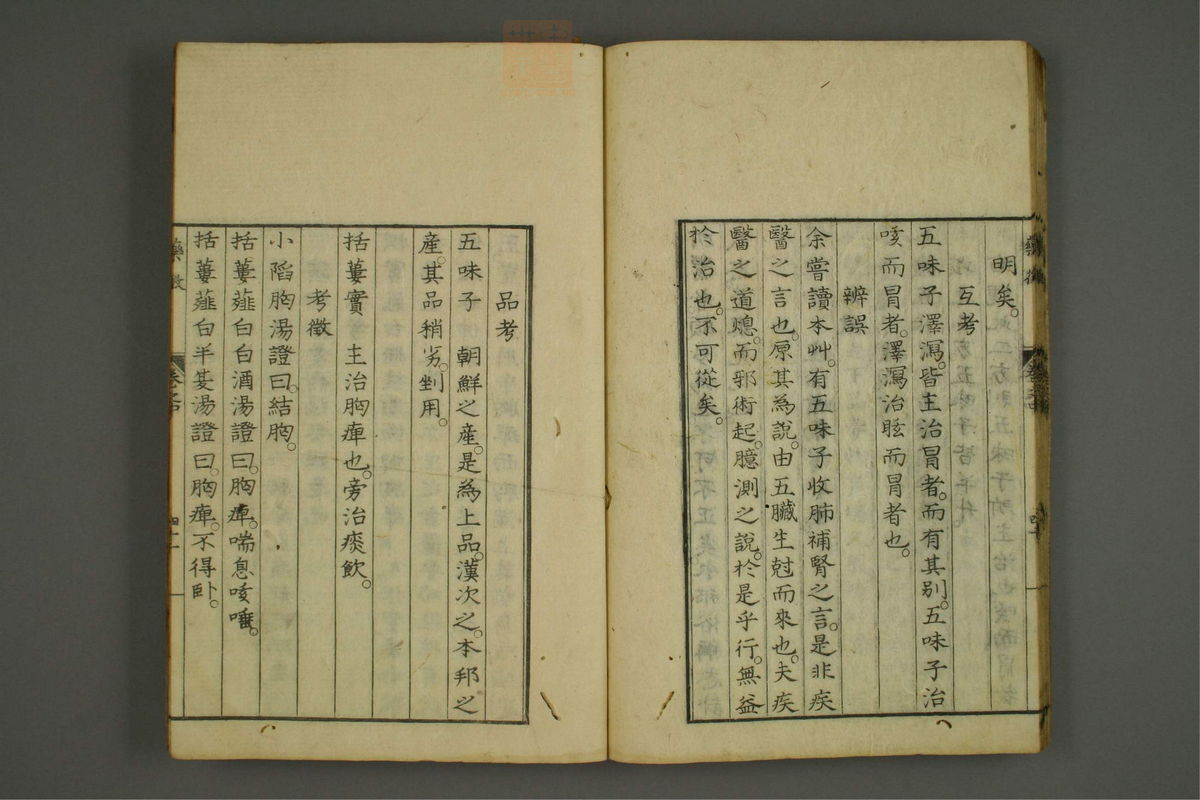 明矣。
互考
五味子澤瀉。皆主治冒者。而有其別。五味子治
咳而冒者。澤瀉治眩而冒者也。
辨誤
余嘗讀本艸。有五味子收肺補腎之言。是非疾
醫之言也。原其為說。由五臟生尅而來也。夫疾
醫之道熄。而邪術起。臆測之說。於是乎行。無益
於治也。不可從矣。
品考
五味子 朝鮮之產。是為上品。漢次之。本邦之
產。其品稍劣。剉用。
括蔞實 主治胸痺也。旁治痰飲。
考徵
小陷胸湯證曰。結胸。
括蔞薤白白酒湯證曰。胸痺。喘息咳唾。
括蔞薤白半夏湯證曰。胸痺。不得臥。
藥徵